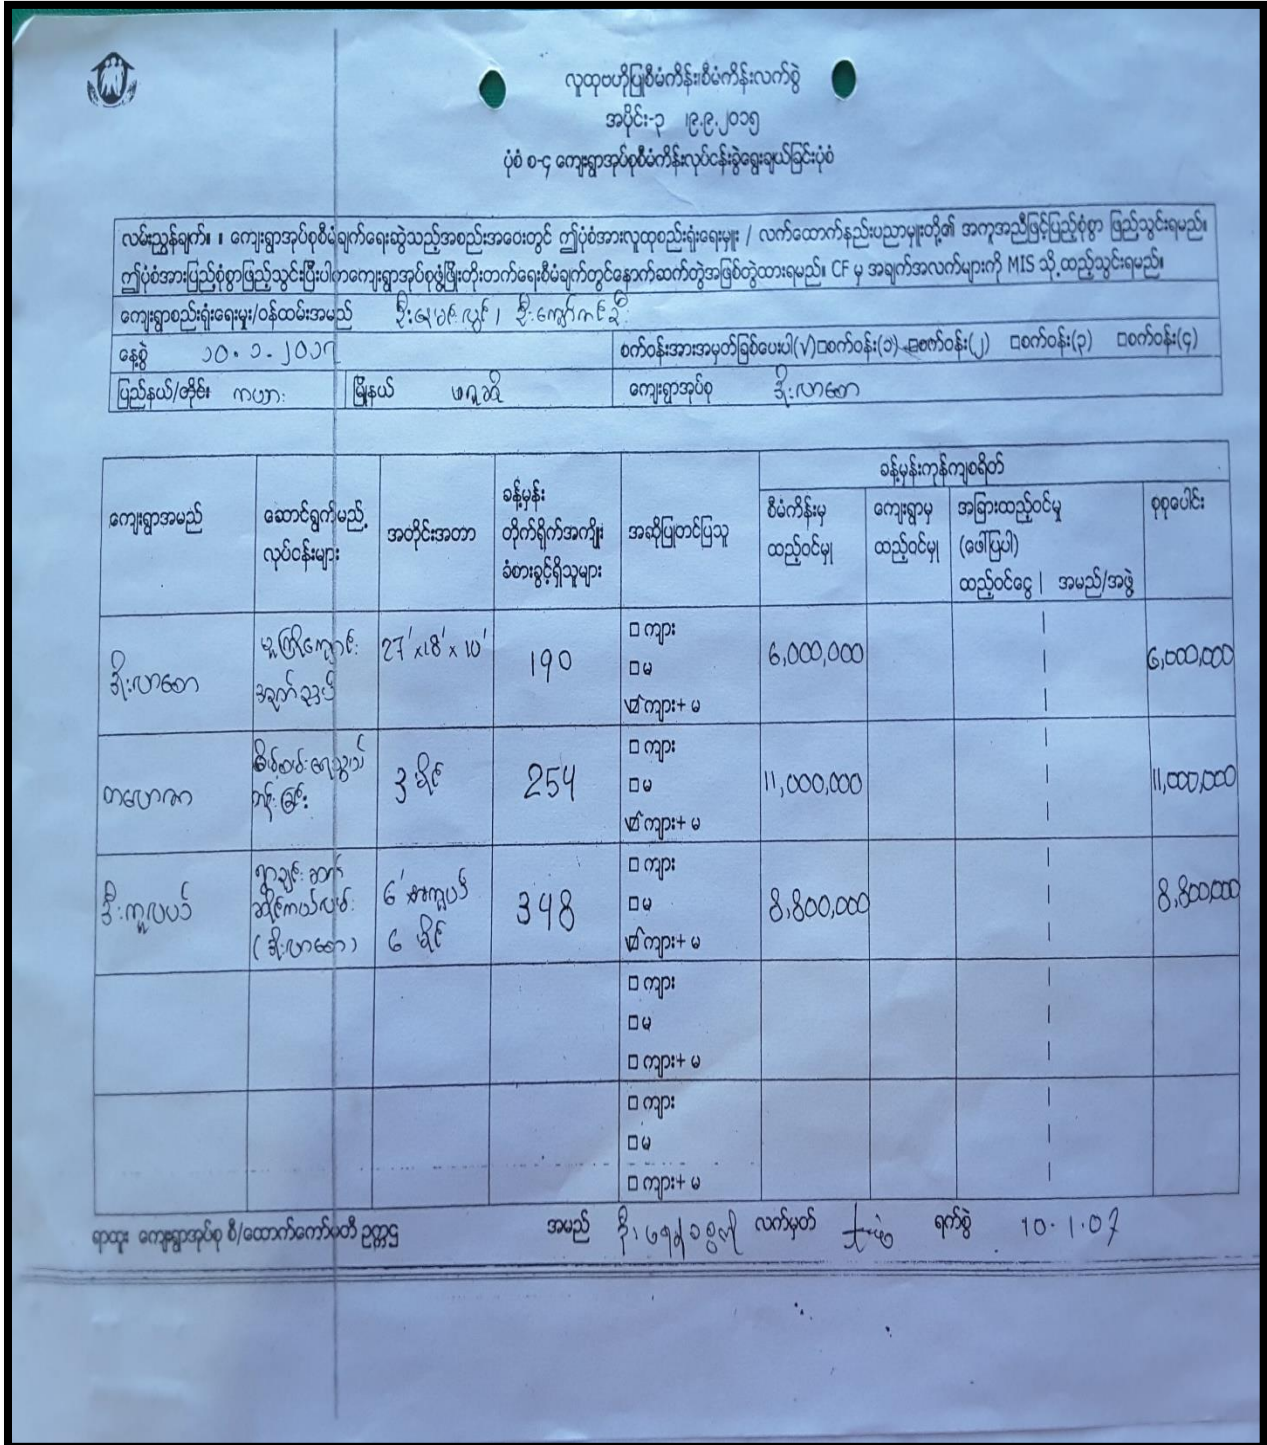 လူထုဗဟိုပြုစီမံကိန်း၊စီမံကိန်းလက်စွဲ
အပိုင်း-၃ ၊၉.၉.၂၀၁၅
ပုံစံ စ-၄ ကျေးရွာအုပ်စုစီမံကိန်းလုပ်ငန်းခွဲရွေးချယ်ခြင်းပုံစံ
လမ်းညွှန်ချက်။ ။ ကျေးရွာအုပ်စုစီမံချက်ရေးဆွဲသည့်အစည်းအဝေးတွင် ဤပုံစံအားလူထုစည်းရုံးရေးမှူး / လက်ထောက်နည်းပညာမှူးတို့၏ အကူအညီဖြင့်ပြည့်စုံစွာ ဖြည့်သွင်းရမည်။
ဤပုံစံအားပြည့်စုံစွာဖြည့်သွင်းပြီးပါကကျေးရွာအုပ်စုဖွံ့ဖြိုးတိုးတက်ရေးစီမံချက်တွင်နောက်ဆက်တွဲအဖြစ်တွဲထားရမည်။ CF မှ အချက်အလက်များကို MIS သို့ထည့်သွင်းရမည်။
ကျေးရွာစည်းရုံးရေးမှူး/ဝန်ထမ်းအမည်
နေ့စွဲ ၁၀.၁.၂၀၁၇ စက်ဝန်းအားအမှတ်ခြစ်ပေးပါ(√)□စက်ဝန်း(၁) □စက်ဝန်း(၂) □စက်ဝန်း(၃) □စက်ဝန်း(၄)
ပြည်နယ်/တိုင်း ကယား မြို့နယ် ဖရူဆို ကျေးရွာအုပ်စု ဒိုးလာစော
ခန့်မှန်းကုန်ကျစရိတ်
ကျေးရွာအမည် ဆောင်ရွက်မည့် လုပ်ငန်းများ အတိုင်းအတာ ခန့်မှန်း တိုက်ရိုက်အကျိုး ခံစားခွင့်ရှိသူများ အဆိုပြုတင်ပြသူ စီမံကိန်းမှ ထည့်ဝင်မှု ကျေးရွာမှ ထည့်ဝင်မှု အခြားထည့်ဝင်မှု (ဖေါ်ပြပါ) ထည့်ဝင်ငွေ | အမည်/အဖွဲ့ စုစုပေါင်း
ဒိုးလာစော မူကြိုကျောင်း 27' x 18' x 10' 190 □ ကျား 6,000,000 6,000,000
□ မ
☑ ကျား+ မ
3 မိုင် 254 □ ကျား 11,000,000 11,000,000
□ မ
☑ ကျား+ မ
(ဒိုးလာစော) 6' 6 မိုင် 348 □ ကျား 8,800,000 8,800,000
□ မ
☑ ကျား+ မ
□ ကျား
□ မ
□ ကျား+ မ
□ ကျား
□ မ
□ ကျား+ မ
ရာထူး ကျေးရွာအုပ်စု စီ/ထောက်ကော်မတီ ဥက္ကဋ္ဌ အမည် လက်မှတ် ရက်စွဲ 10.1.07